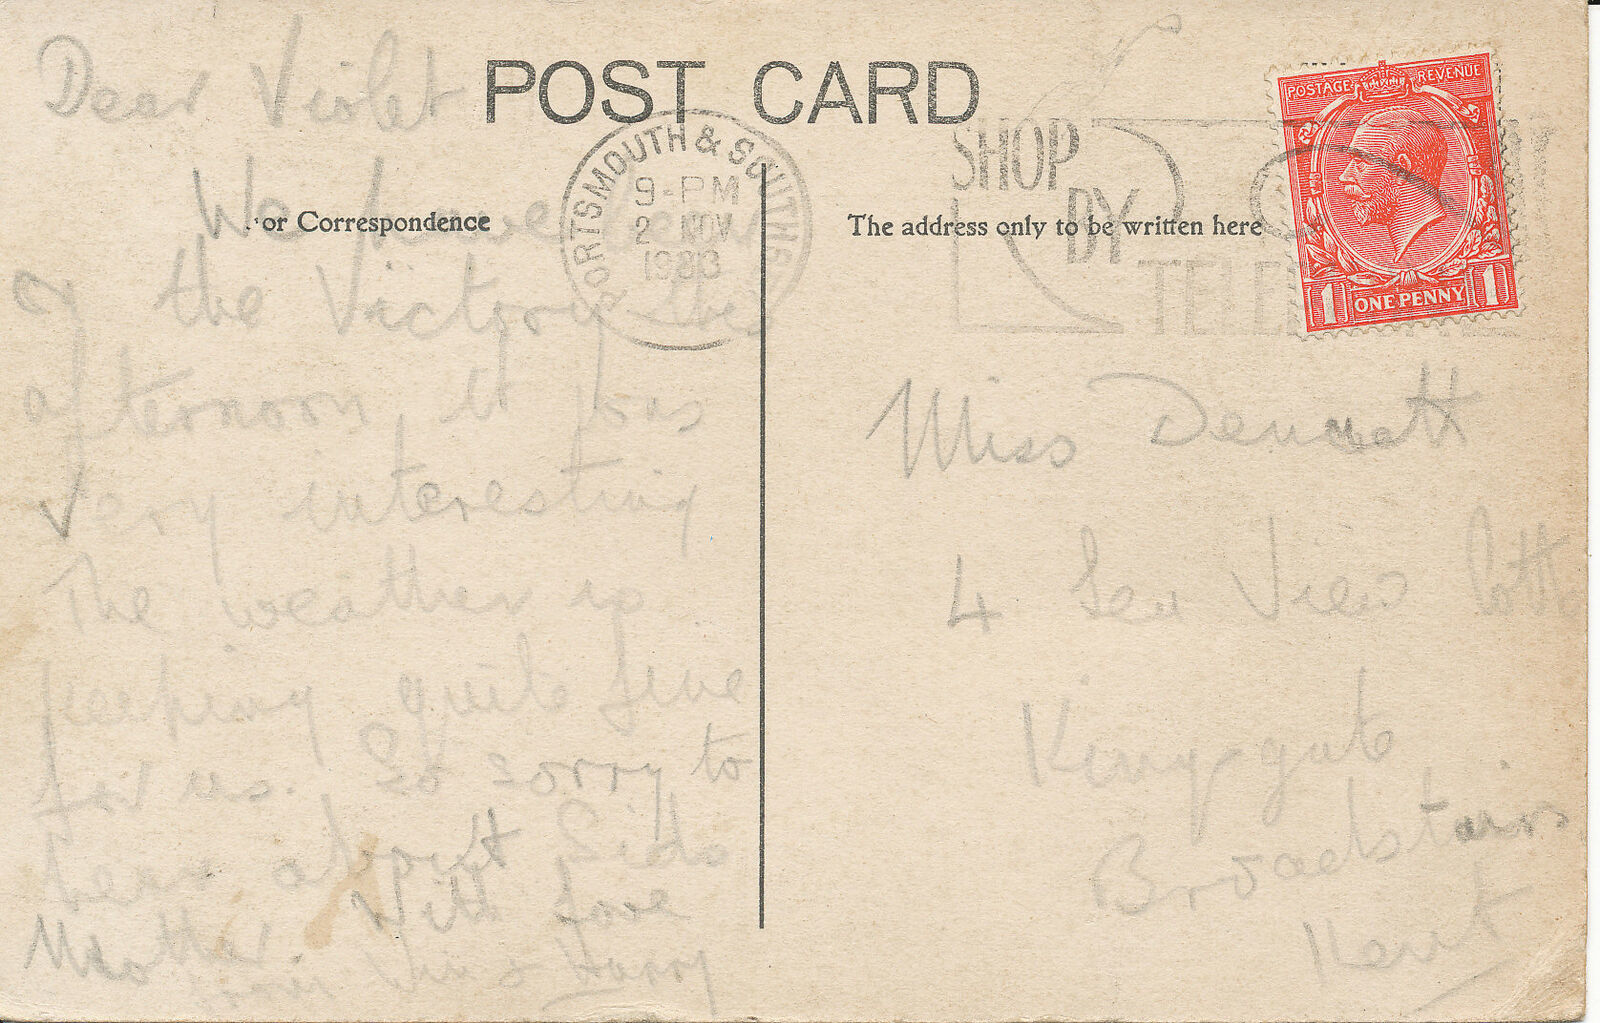 POST CARD
or Correspondence
The address only to be written here
PORTSMOUTH & SOUTHSEA
9-PM
2 NOV
1933
SHOP
BY
TELEPHONE
POSTAGE REVENUE
1 ONE PENNY 1
Dear Violet
We have been
on the Victory this
afternoon, it was
very interesting
The weather is
keeping quite fine
for us. So sorry to
hear about Sids
Mother. With love
from & Harry
Miss Dennett
4 Sea View Cotts
Kingsgate
Broadstairs
Kent